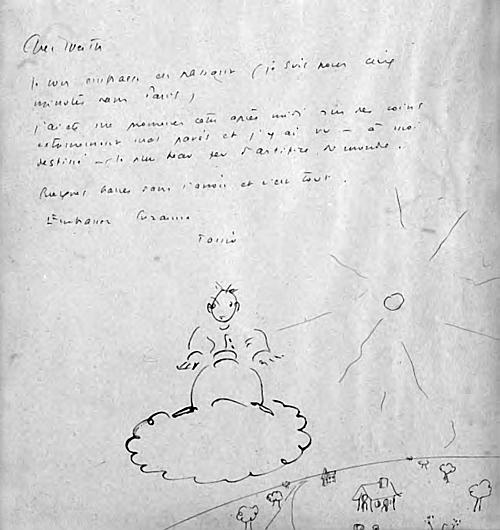 Cher Werth
Je vous embrasse en passant (je suis pour cinq
minutes dans Paris)
J'ai été me promener cette après midi sur des coins
extrêmement mal pavés et j'y ai vu — à moi
destiné — le plus beau feu d'artifice du monde.
Quelques balles dans l'avion et c'est tout.
Embrassez Suzanne
Tonio